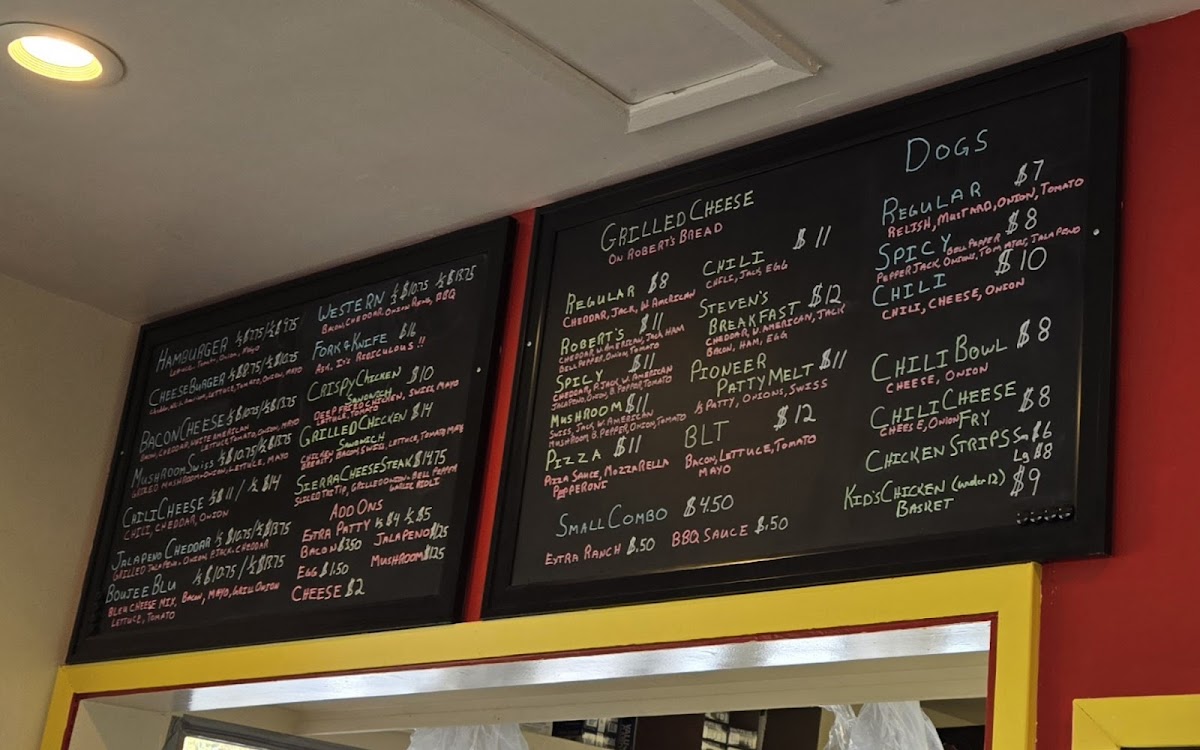 HAMBURGER ⅓ $7.75/½ $9.75
LETTUCE, TOMATO, ONION, MAYO
CHEESEBURGER ⅓ $8.75/½ $10.75
LETTUCE, TOMATO, ONION, MAYO
BACON CHEESE ⅓ $10.75/½ $13.75
BACON, CHEDDAR, WHITE AMERICAN
LETTUCE, TOMATO, ONION, MAYO
MUSHROOM SWISS ⅓ $10.75/½ $13.75
GRILLED MUSHROOM+ONION, LETTUCE, MAYO
CHILI CHEESE ⅓ $11 / ½ $14
CHILI, CHEDDAR, ONION
JALAPENO CHEDDAR ⅓ $10.75/½ $13.75
GRILLED JALAPENO+ONION, P.JACK, CHEDDAR
BOUJEE BLU ⅓ $10.75 / ½ $13.75
BLEU CHEESE MIX, BACON, MAYO, GRILL ONION
LETTUCE, TOMATO
WESTERN ⅓ $10.75 ½ $13.75
BACON, CHEDDAR, ONION RING, BBQ
FORK & KNIFE $16
ASK, IT'S RIDICULOUS!!
CRISPY CHICKEN $10
SANDWICH
DEEP FRIED CHICKEN, SWISS, MAYO
LETTUCE, TOMATO
GRILLED CHICKEN $14
SANDWICH
CHICKEN BREAST, BACON, SWISS, LETTUCE, TOMATO, MAYO
SIERRA CHEESE STEAK $14.75
SLICED TRI TIP, GRILLED ONION, BELL PEPPER
GARLIC AIOLI
ADD ONS
EXTRA PATTY ⅓ $4 ½ $5
BACON $3.50 JALAPENO $1.25
EGG $1.50 MUSHROOM $1.25
CHEESE $2
GRILLED CHEESE
ON ROBERT'S BREAD
REGULAR $8
CHEDDAR, JACK, W. AMERICAN
ROBERT'S $11
CHEDDAR, W. AMERICAN, JACK, HAM
BELL PEPPER, ONION, TOMATO
SPICY $11
CHEDDAR, P.JACK, W. AMERICAN
JALAPENO, ONION, B. PEPPER, TOMATO
MUSHROOM $11
SWISS, JACK, W. AMERICAN
MUSHROOM, B. PEPPER, ONION, TOMATO
PIZZA $11
PIZZA SAUCE, MOZZARELLA
PEPPERONI
CHILI $11
CHILI, JACK, EGG
STEVEN'S
BREAKFAST $12
CHEDDAR, W. AMERICAN, JACK
BACON, HAM, EGG
PIONEER
PATTY MELT $11
⅓ PATTY, ONIONS, SWISS
BLT $12
BACON, LETTUCE, TOMATO
MAYO
SMALL COMBO $4.50
EXTRA RANCH $.50 BBQ SAUCE $.50
DOGS
REGULAR $7
RELISH, MUSTARD, ONION, TOMATO
SPICY $8
BELL PEPPER
PEPPER JACK, ONIONS, TOMATOES, JALAPENO
CHILI $10
CHILI, CHEESE, ONION
CHILI BOWL $8
CHEESE, ONION
CHILI CHEESE
FRY $8
CHEESE, ONION
CHICKEN STRIPS Sm $6
Lg $8
KID'S CHICKEN (under 12) $9
BASKET